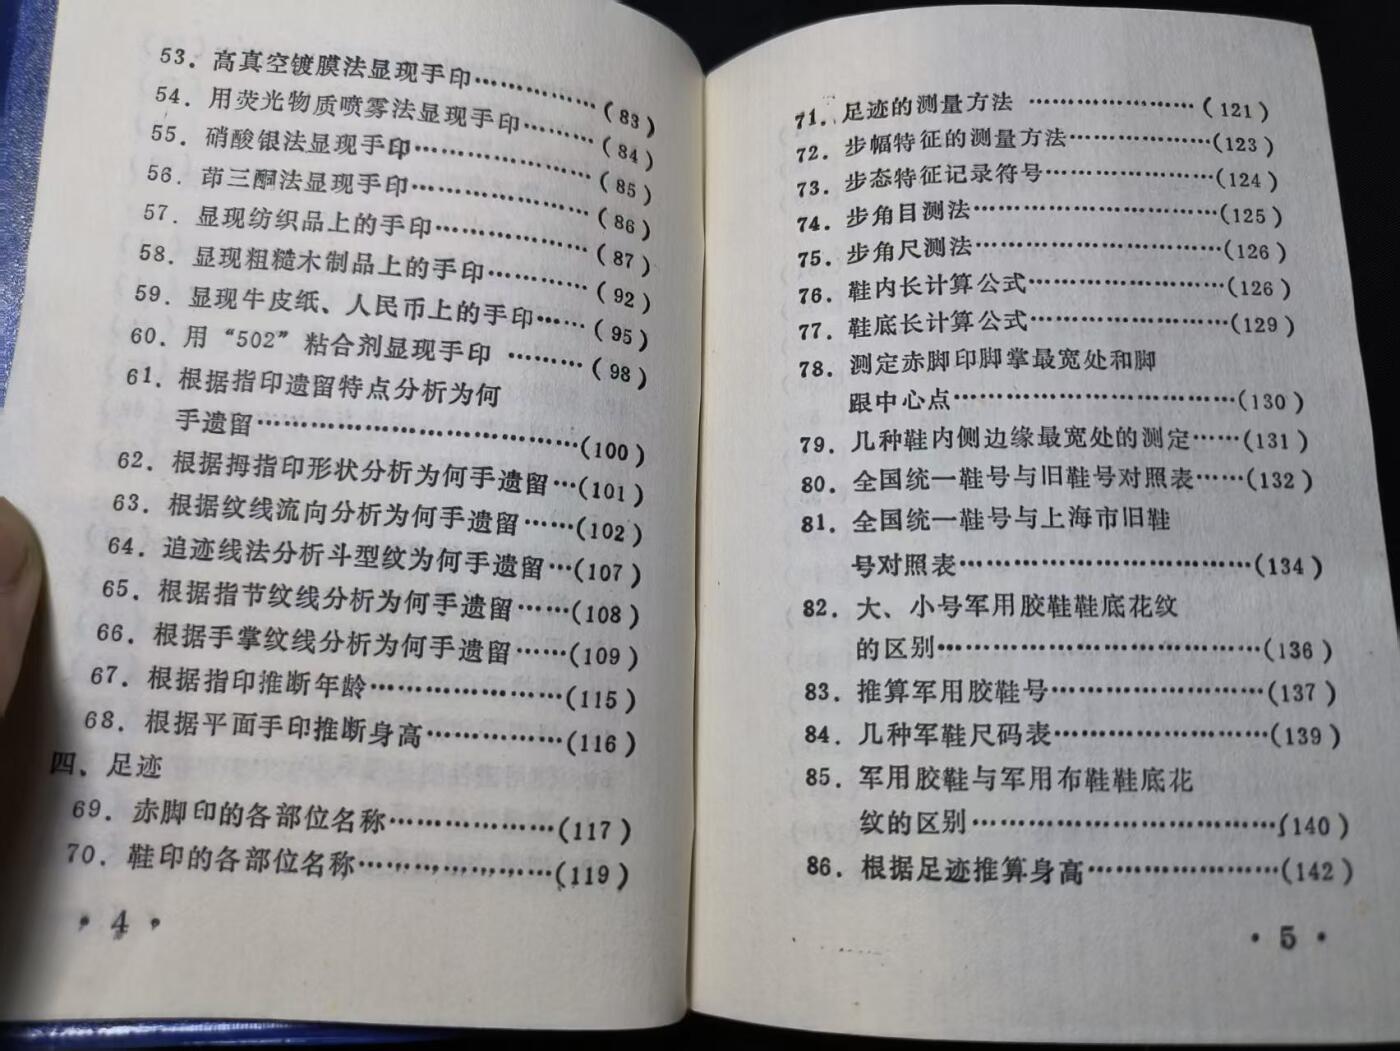 53. 高真空镀膜法显现手印……………(83)
54. 用荧光物质喷雾法显现手印………(84)
55. 硝酸银法显现手印…………………(85)
56. 茚三酮法显现手印…………………(86)
57. 显现纺织品上的手印………………(87)
58. 显现粗糙木制品上的手印…………(92)
59. 显现牛皮纸、人民币上的手印……(95)
60. 用“502”粘合剂显现手印 ………(98)
61. 根据指印遗留特点分析为何
手遗留………………………………(100)
62. 根据拇指印形状分析为何手遗留…(101)
63. 根据纹线流向分析为何手遗留……(102)
64. 追迹线法分析斗型纹为何手遗留…(107)
65. 根据指节纹线分析为何手遗留……(108)
66. 根据手掌纹线分析为何手遗留……(109)
67. 根据指印推断年龄…………………(115)
68. 根据平面手印推断身高……………(116)
四、足迹
69. 赤脚印的各部位名称………………(117)
70. 鞋印的各部位名称…………………(119)
· 4 ·
71. 足迹的测量方法 ………………(121)
72. 步幅特征的测量方法……………(123)
73. 步态特征记录符号………………(124)
74. 步角目测法………………………(125)
75. 步角尺测法………………………(126)
76. 鞋内长计算公式…………………(126)
77. 鞋底长计算公式…………………(129)
78. 测定赤脚印脚掌最宽处和脚
跟中心点…………………………(130)
79. 几种鞋内侧边缘最宽处的测定……(131)
80. 全国统一鞋号与旧鞋号对照表……(132)
81. 全国统一鞋号与上海市旧鞋
号对照表…………………………(134)
82. 大、小号军用胶鞋鞋底花纹
的区别……………………………(136)
83. 推算军用胶鞋号…………………(137)
84. 几种军鞋尺码表…………………(139)
85. 军用胶鞋与军用布鞋鞋底花
纹的区别…………………………(140)
86. 根据足迹推算身高………………(142)
· 5 ·